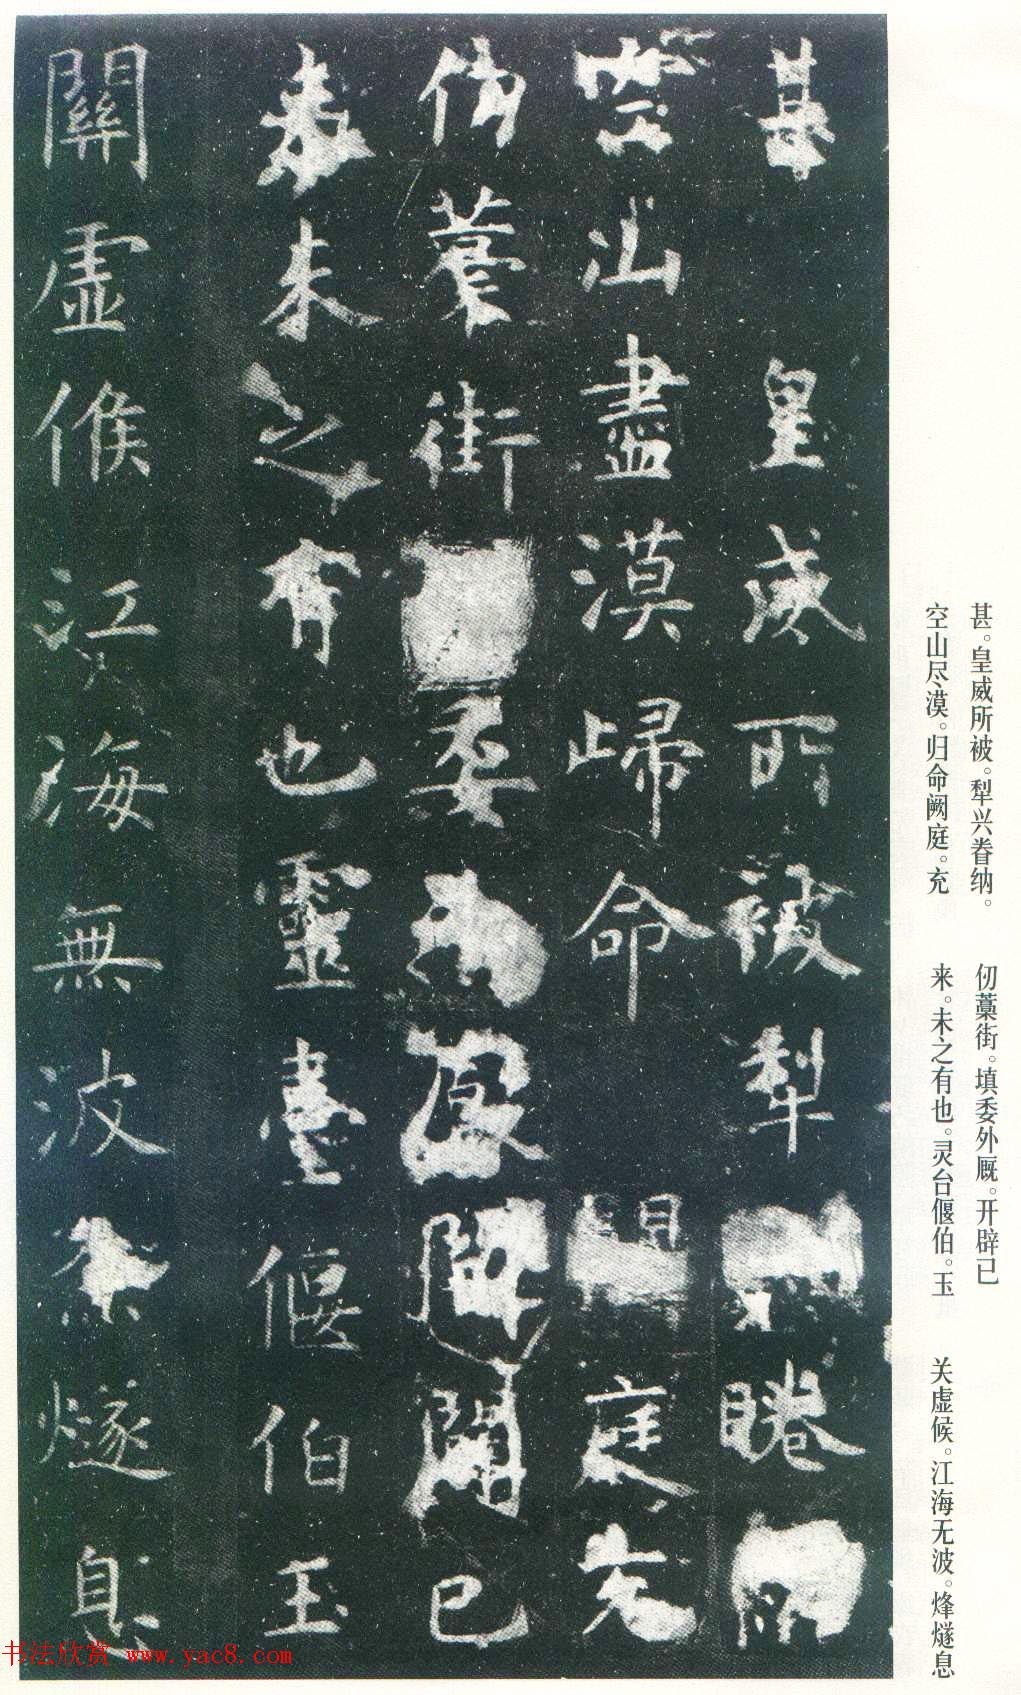 甚。皇威所被。犁兴眷纳。
空山尽漠。归命阙庭。充
仞藁街。填委外厩。开辟已
来。未之有也。灵台偃伯。玉
关虚候。江海无波。烽燧息
甚皇威所被犁睠
空山盡漠歸命庭充
仞藁街委開闢已
来未之有也靈臺偃伯玉
關虛候江海無波烽燧息
书法欣赏 www.yac8.com